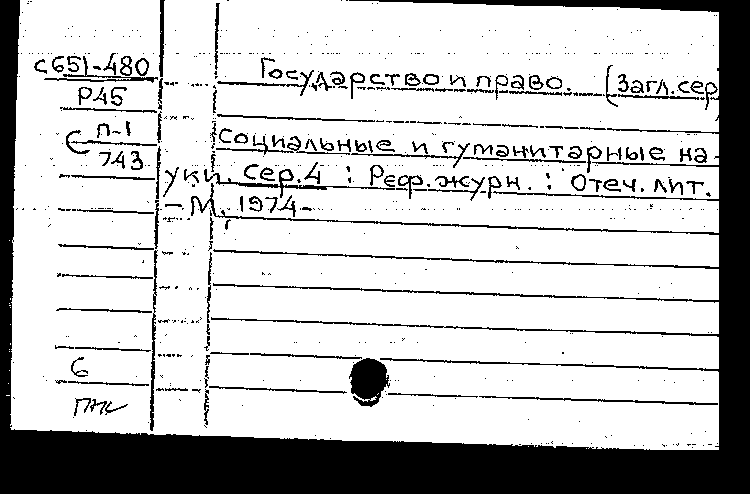 с651-480
Р45
П-1
743
Государство и право. (Загл. сер
Социальные и гуманитарные на-
уки. Сер. 4 : Реф. журн. : Отеч. лит.
- М., 1974-
6